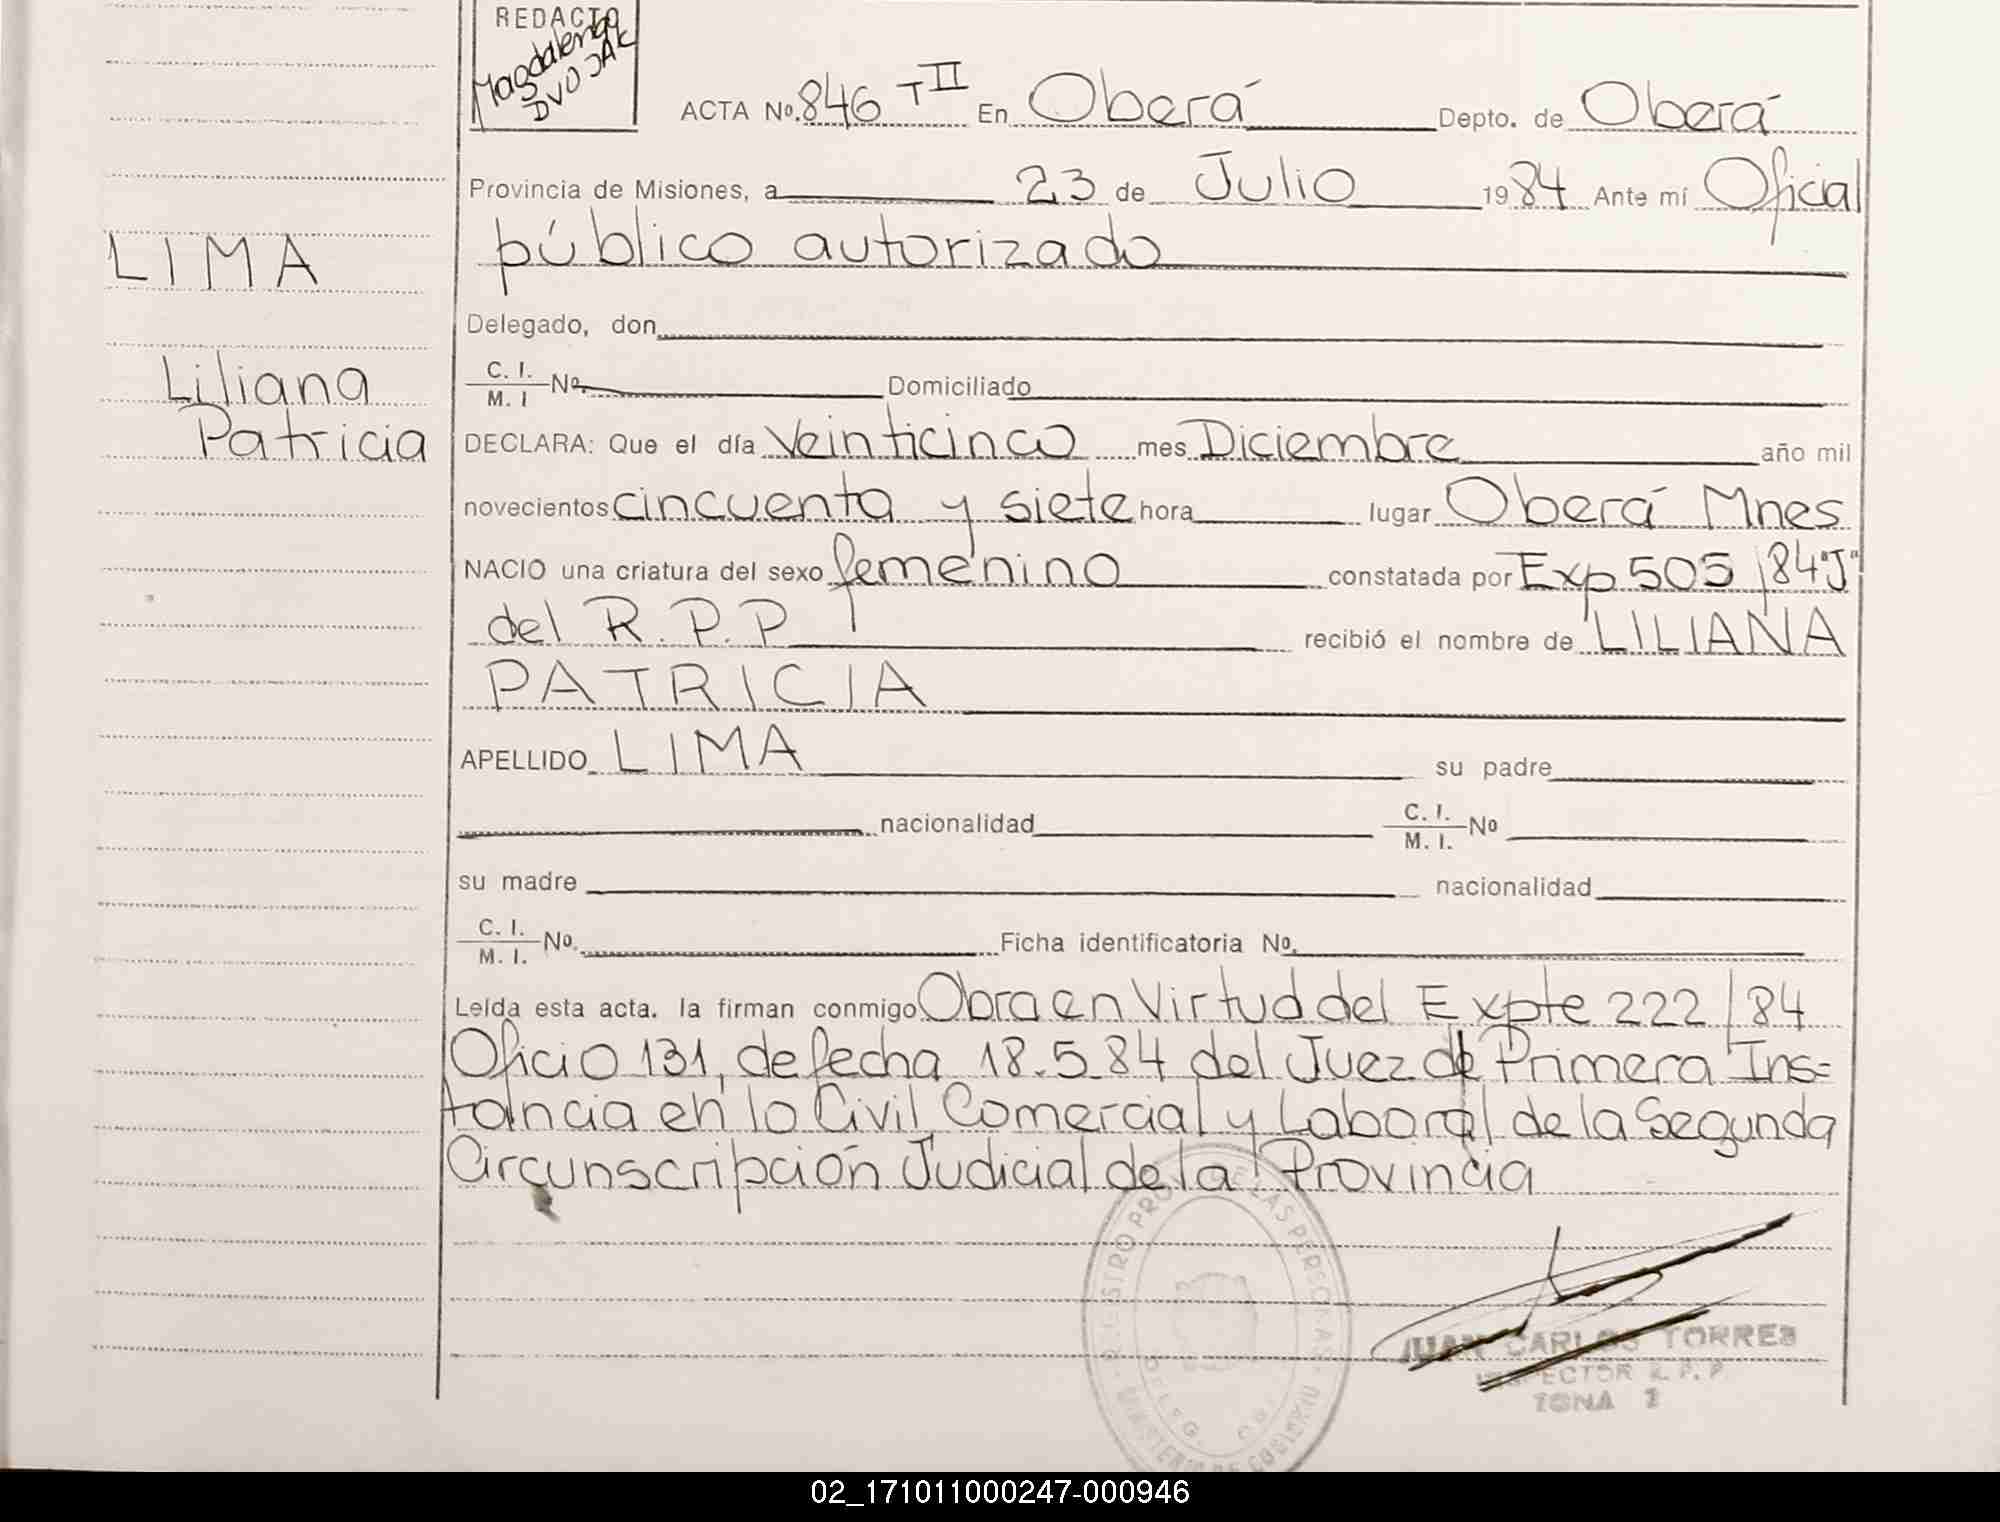 REDACTO
Magdalena
DVOJAK
ACTA Nº. 846 T II En Oberá Depto. de Oberá
Provincia de Misiones, a 23 de Julio 1984 Ante mí Oficial
público autorizado
LIMA
Delegado, don
C. I.
M. I
Nº.
Domiciliado
Liliana
Patricia
DECLARA: Que el día Veinticinco mes Diciembre año mil
novecientos cincuenta y siete hora lugar Oberá Mnes
NACIO una criatura del sexo femenino constatada por Exp 505/84"J"
del R.P.P recibió el nombre de LILIANA
PATRICIA
APELLIDO LIMA su padre
nacionalidad C. I.
M. I. Nº
su madre nacionalidad
C. I.
M. I. Nº. Ficha identificatoria Nº.
Leída esta acta. la firman conmigo Obra en Virtud del Expte 222/84
Oficio 131, de fecha 18.5.84 del Juez de Primera Ins=
tancia en lo Civil, Comercial y Laboral de la Segunda
Circunscripción Judicial de la Provincia
REGISTRO PROV. DE LAS PERSONAS
MINISTERIO DE GOBIERNO
JUAN CARLOS TORRES
INSPECTOR R. P. P.
ZONA 2
02_171011000247-000946